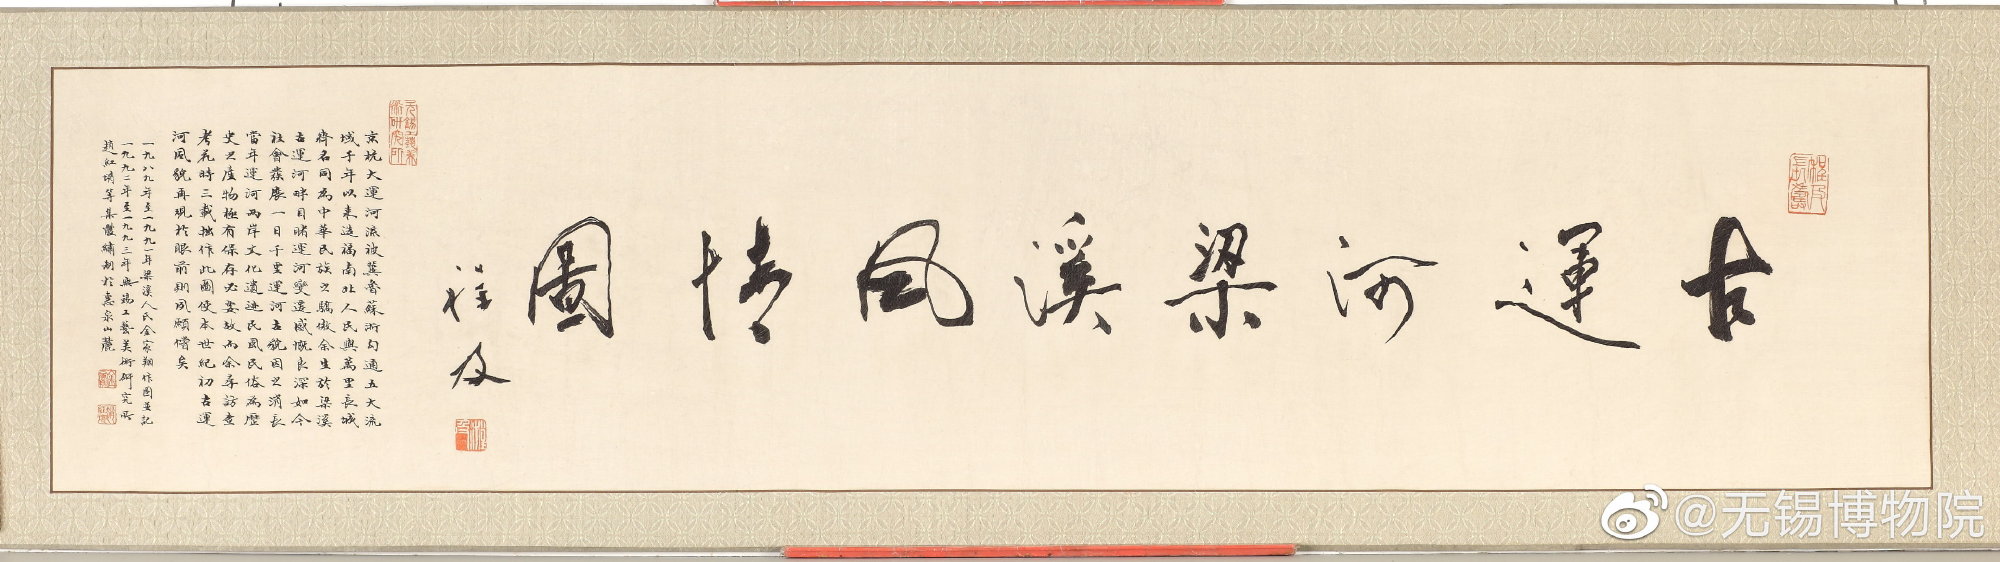 古運河梁溪風情圖
程及
京杭大運河流被冀魯蘇浙勾通五大流
域千年以来造福南北人民與萬里長城
齊名同為中華民族之驕傲余生於梁溪
古運河畔目睹運河變遷感慨良深如今
社會發展一日千里運河古貌因之消長
當年運河兩岸文化遺迹民風民俗為歷
史之產物極有保存必要故而余尋訪查
考花時三載拙作此圖使本世紀初古運
河風貌再現於眼前則夙願償矣
一九八九年至一九九一年梁溪人民金家翔作圖并記
一九九二年至一九九三年無錫工藝美術研究所
趙紅 等集體繡制於惠泉山麓
@无锡博物院